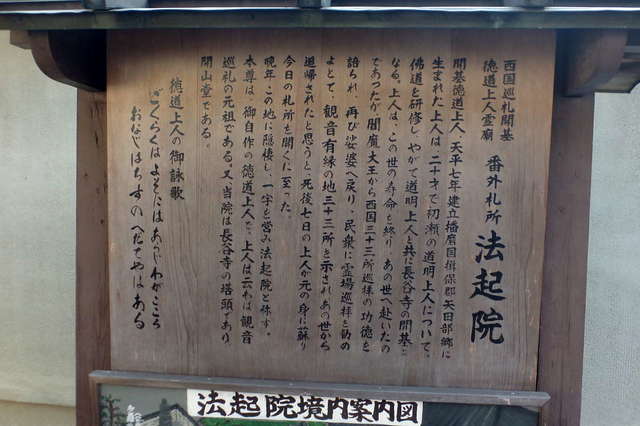 西国巡礼開基
徳道上人霊廟
番外札所 法起院
開基徳道上人、天平七年建立播磨国揖保郡矢田部郷に
生まれた上人は、二十才で初瀬の道明上人について、
佛道を研修し、やがて道明上人と共に長谷寺の開基と
なる。上人は、この世の寿命を終り、あの世へ赴いたの
であったが、閻魔大王から西国三十三所巡拝の功徳を
語られ、再び娑婆へ戻り、民衆に霊場巡拝を勧め
よとて、観音有縁の地三十三所を示され、あの世から
追帰されたと思うと、死後七日の上人が元の身に蘇り
今日の札所を開くに至った。
晩年、この地に隠棲し、一宇を営み法起院と称す。
本尊は、御自作の徳道上人で、上人は云わば観音
巡礼の元祖である。又当院は長谷寺の塔頭であり、
開山堂である。
徳道上人の御詠歌
ごくらくはよそにはあらじわがこころ
おなじはちすのへだてやはある
法起院境内案内図